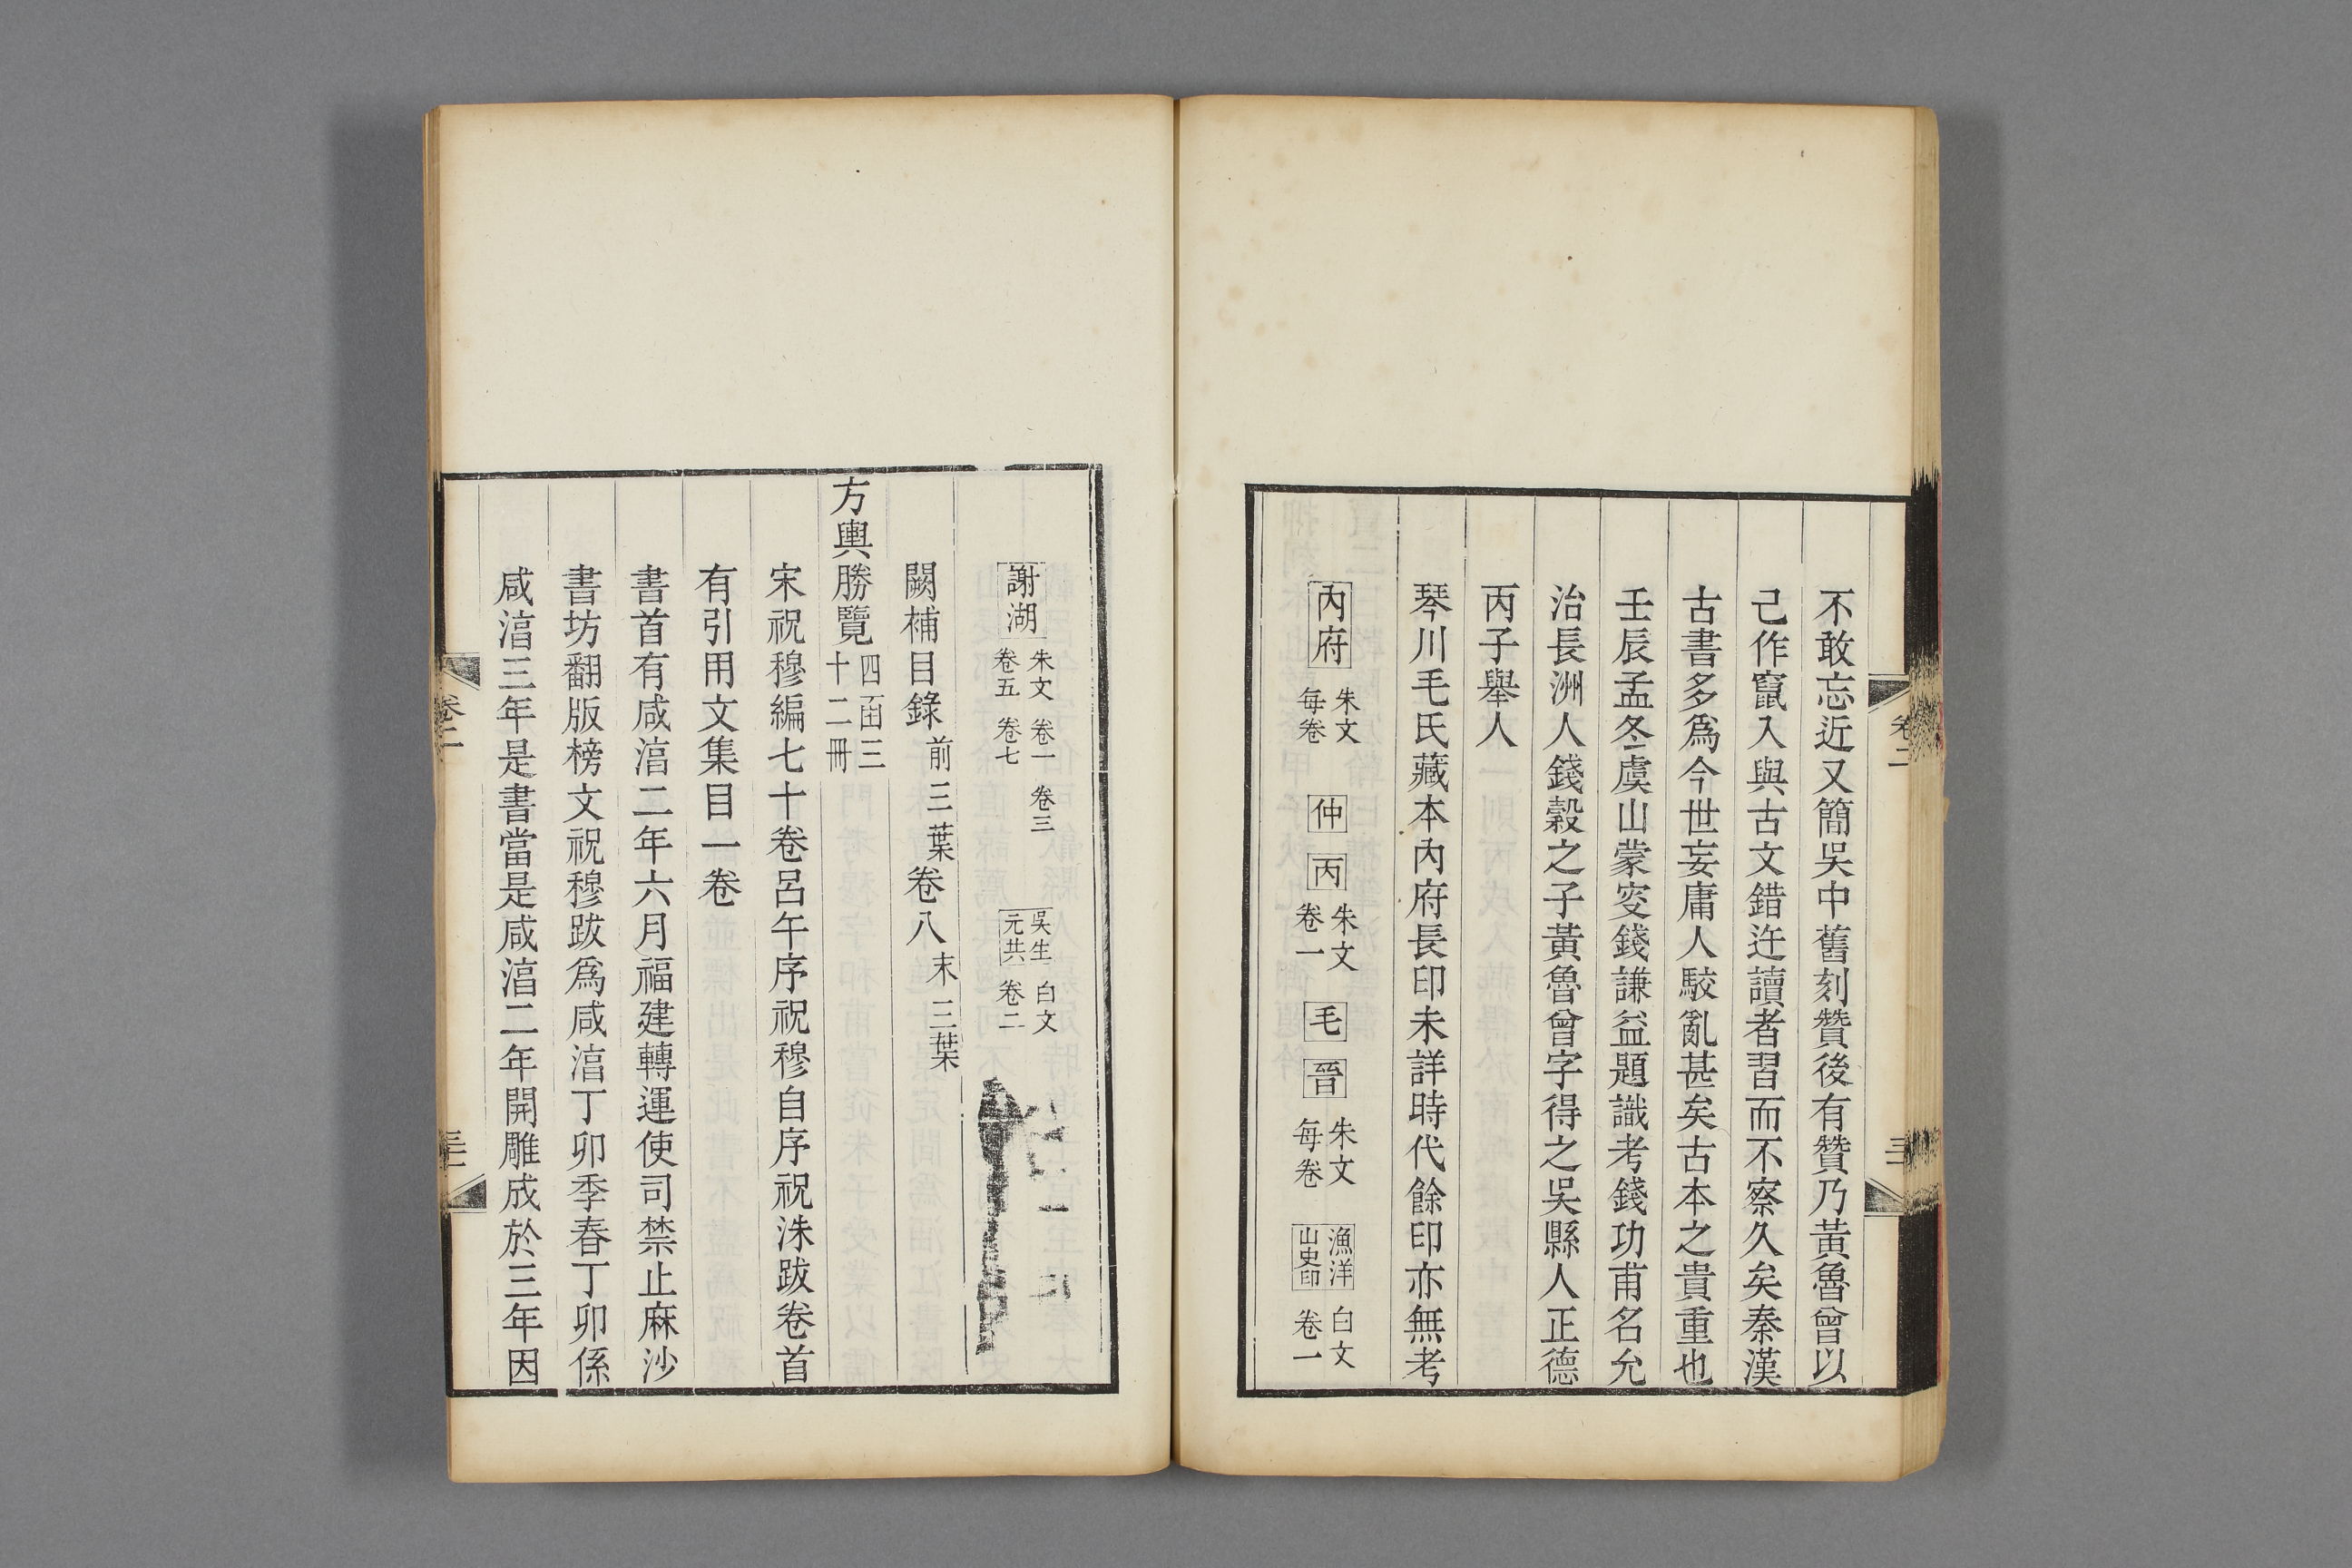 不敢忘近又簡吳中舊刻贊後有贊乃黃魯曾以
己作竄入與古文錯迕讀者習而不察久矣秦漢
古書多爲今世妄庸人駮亂甚矣古本之貴重也
壬辰孟冬虞山蒙叟錢謙益題識考錢功甫名允
治長洲人錢穀之子黃魯曾字得之吳縣人正德
丙子舉人
琴川毛氏藏本內府長印未詳時代餘印亦無考
內府 朱文 每卷 仲 丙 朱文 卷一 毛 晉 朱文 每卷 漁洋山史印 白文 卷一
卷二
謝湖 朱文 卷一 卷三 卷五 卷七 吳生元共 白文 卷二
闕補目錄前三葉卷八末三葉
方輿勝覽 四函三十二冊
宋祝穆編七十卷呂午序祝穆自序祝洙跋卷首
有引用文集目一卷
書首有咸淳二年六月福建轉運使司禁止麻沙
書坊翻版榜文祝穆跋爲咸淳丁卯季春丁卯係
咸淳三年是書當是咸淳二年開雕成於三年因
卷二